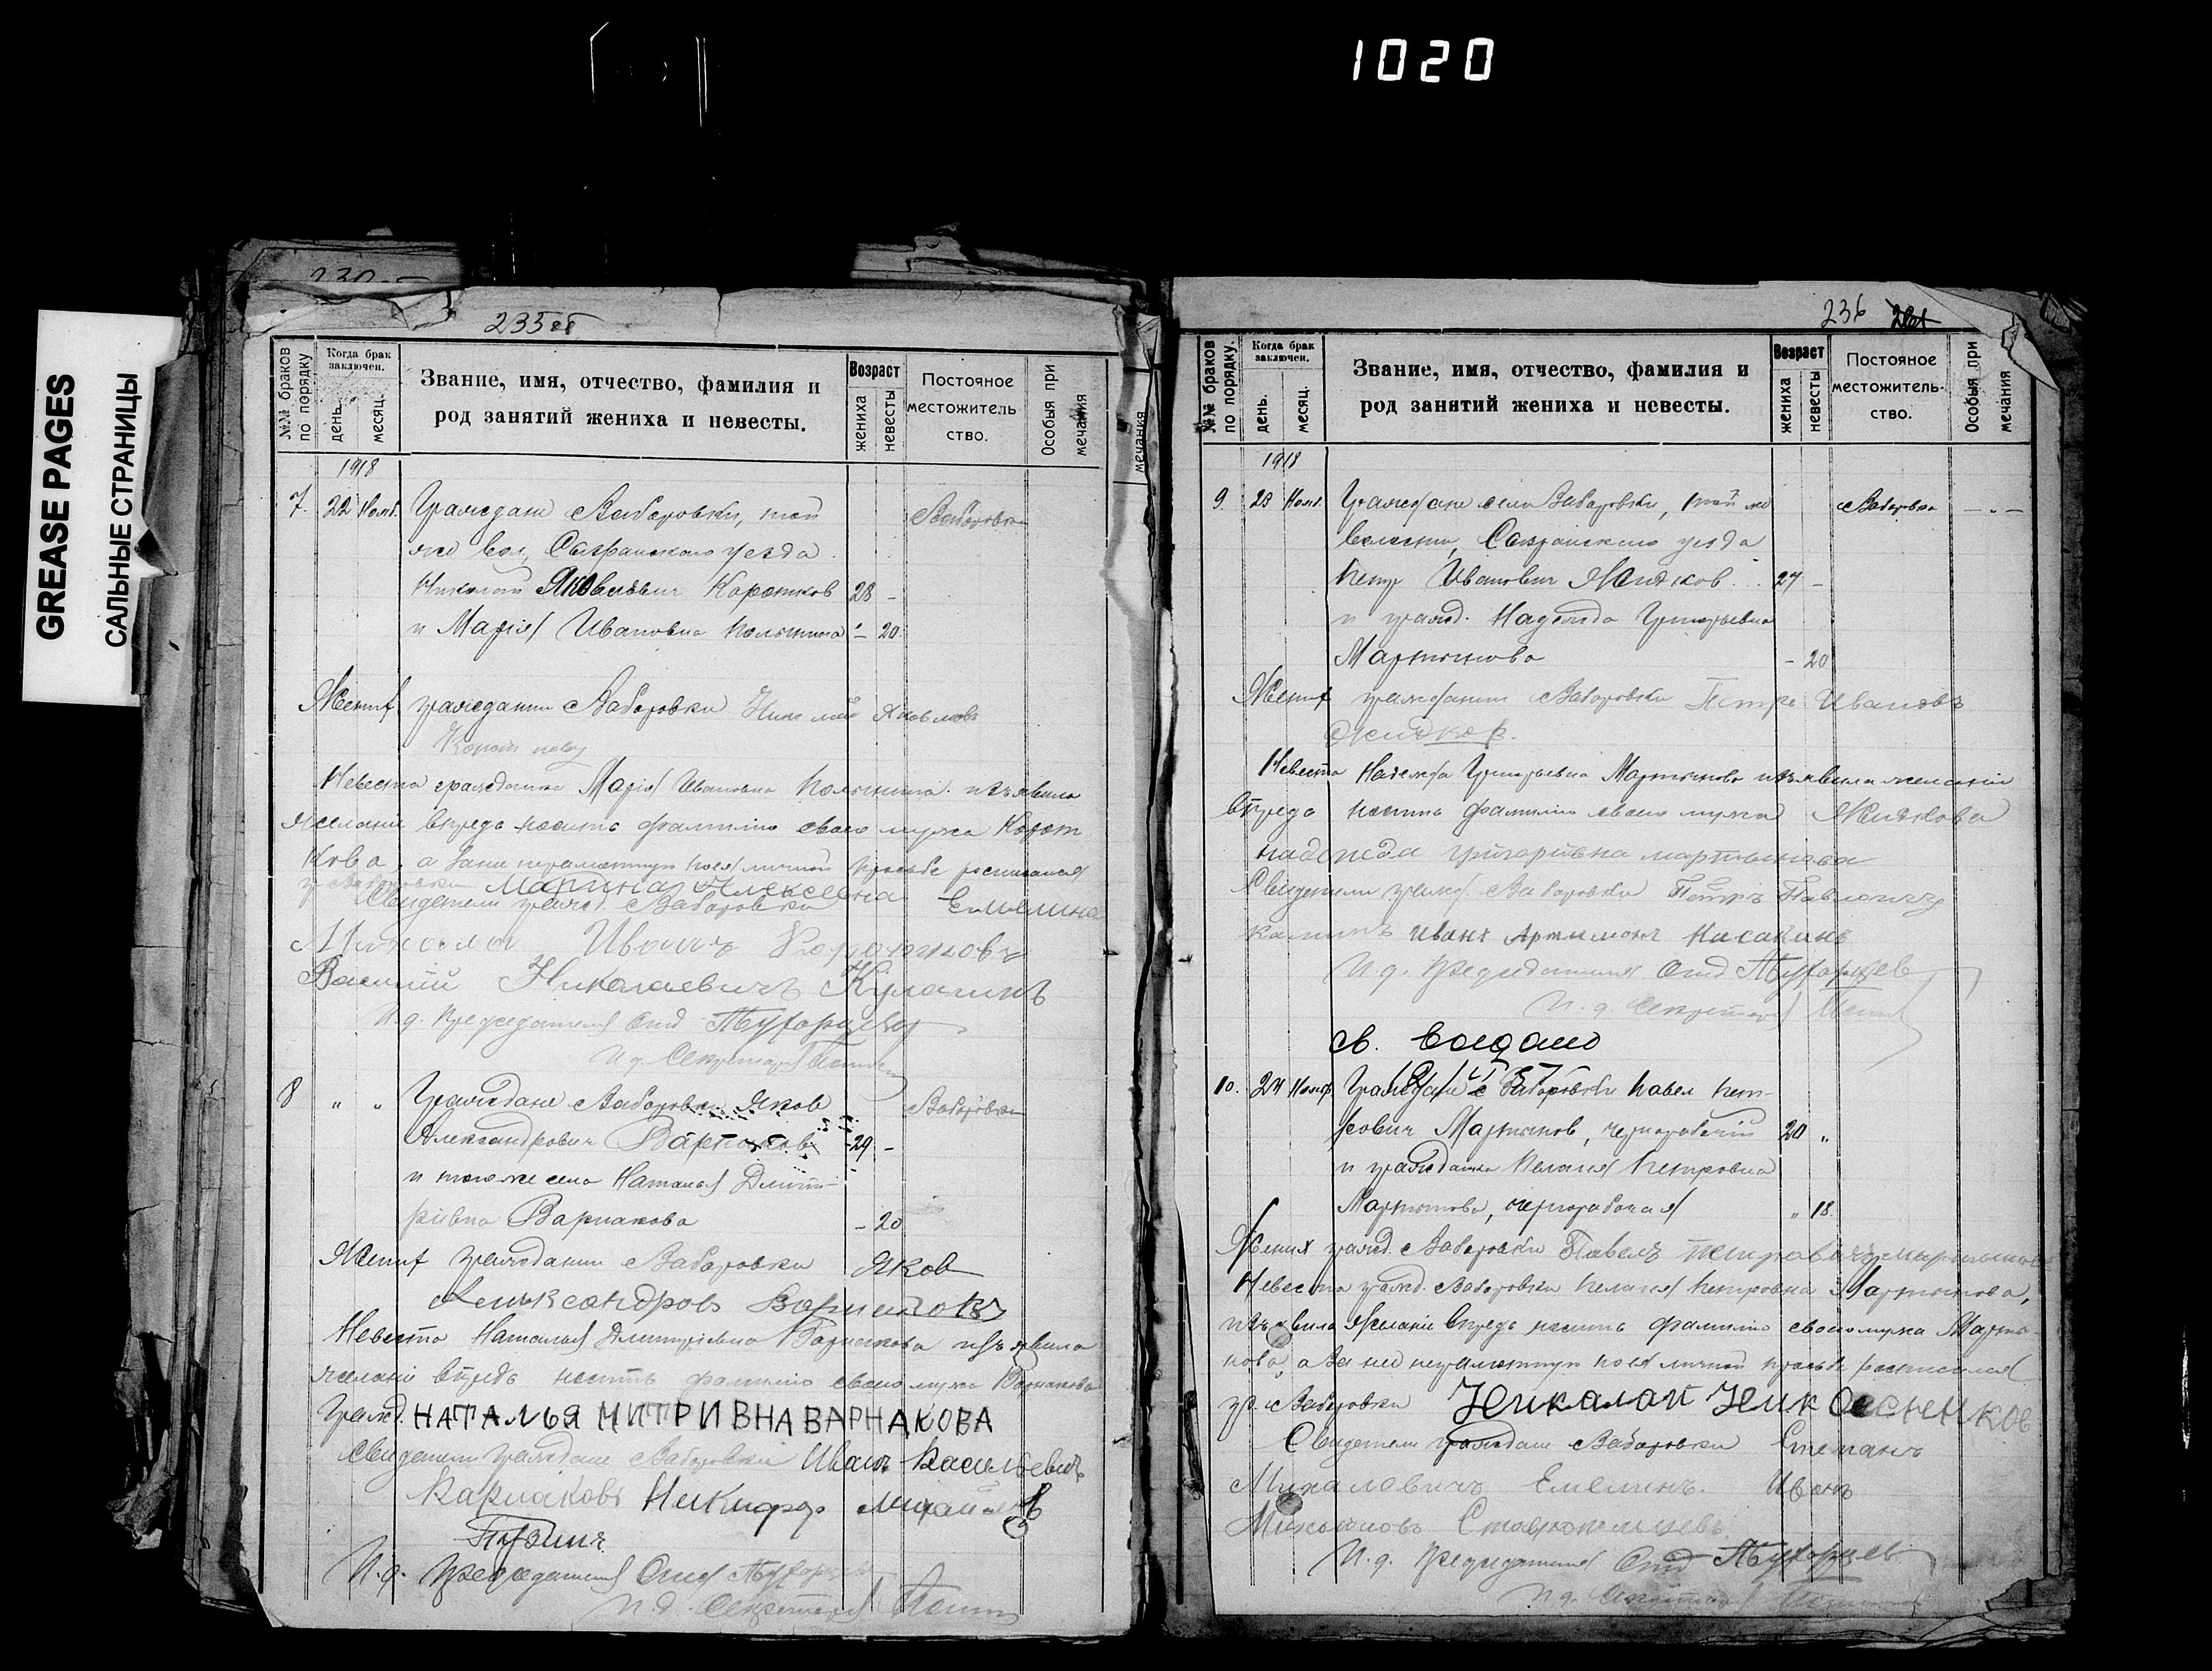 1020
GREASE PAGES
САЛЬНЫЕ СТРАНИЦЫ
235об
№№ браков по порядку
Когда брак заключен.
день.
месяц.
Звание, имя, отчество, фамилия и
род занятий жениха и невесты.
Возраст
жениха
невесты
Постояное
местожитель
ство.
Особыя при
мечания
1918
7. 22 Нояб. Граждане с Заборовки, той Заборовка
же вол, Сызранского уезда
Николай Яковлевич Коротков 28 -
и Мария Ивановна - 20.
Жених гражданин с Заборовки Николай Яковлев
Невеста гражданка Мария Ивановна изъявила
желание впредь носить фамилию своего мужа Корот
кова, а за неграмотную по ея личной просьбе росписался
гр с Заборовки Марина Алексеевна
Свидетели гражд. с Заборовки Емелина
Иваныч Коротковъ
Василий Николаевичъ Кулагинъ
И.д. председателя Отд
И.д. Секретаря
8 " " Граждане с Заборовки Яков Заборовка
Александрович Варнаков 29 -
и того же села Наталья Дмит-
риевна Варнакова - 20
Жених гражданин с Заборовки Яков
Александров Варнаковъ
Невеста Наталья Дмитриевна Варнакова изъявила
желание впредь носить фамилию своего мужа Варнакова
Гражд. НАТАЛЬЯ МИТРИВНА ВАРНАКОВА
Свидетели граждане с Заборовки Иванъ Васильевичъ
Варнаковъ Никифор
И.д. председателя Отд
И.д. Секретаря
мечания
236
№№ браков по порядку.
Когда брак заключен.
день.
месяц.
Звание, имя, отчество, фамилия и
род занятий жениха и невесты.
Возраст
жениха
невесты
Постояное
местожитель-
ство.
Особыя при
мечания
1918
9. 23 Нояб. Граждане села Заборовки, той же с Заборовка - " -
волости, Сызранского уезда
Петр Иванович Жидков 27 -
и гражд. Надежда Григорьевна
Мартынова - 20
Жених гражданин с Заборовки Петръ Ивановъ
Жидков.
Невеста Надежда Григорьевна Мартынова изъявила желание
впредь носить фамилию своего мужа Жидкова
надежда григориевна мартынова
Свидетели гражд. с Заборовки Петръ Павловичъ
Иванъ
И.д. председателя Отд
И.д. Секретаря
св. выдано
10. 24 Нояб. Граждане с Заборовки Павел Пет-
рович Мартынов, чернорабочий 20 "
и гражданка Пелагея Петровна
Мартынова, чернорабочая " 18.
Жених гражд. с Заборовки Павелъ петровичъ мартынов
Невеста гражд. с Заборовки Пелагея Петровна Мартынова,
изъявила желание впредь носить фамилию своего мужа Марты-
нова, а за нее неграмотную по ея личной просьбе росписался
гр. с Заборовки
Свидетели граждане с Заборовки Степанъ
Михаловичъ Емелинъ. Иванъ
И.д. председателя Отд
И.д. Секретаря